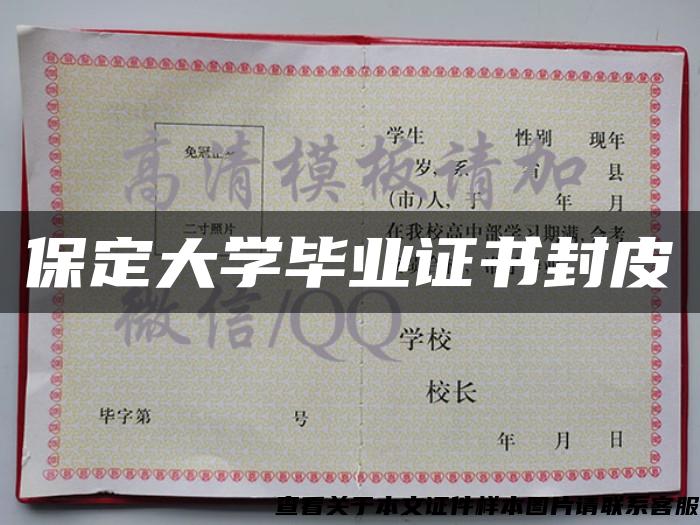 学生 性别 现年
免冠正
岁,系 省 县
高清模板请加
(市)人,于 年 月
二寸照片
在我校高中部学习期满,会考
保定大学毕业证书封皮
微信/QQ
学校
校长
毕字第 号
年 月 日
查看关于本文证件样本图片请联系客服